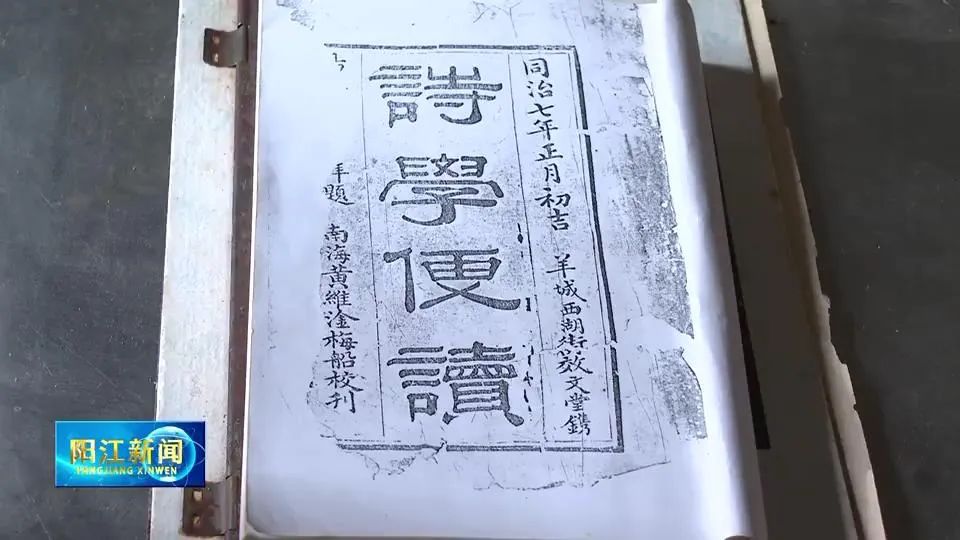 同治七年正月初吉 羊城西湖街效文堂鐫
詩學便讀
年題 南海黃維淦梅船校刊
阳江新闻
YANGJIANG XINWEN